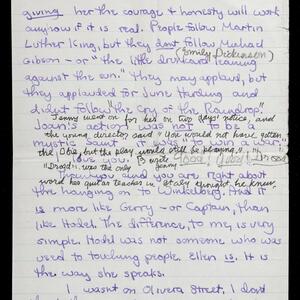 giving her the courage & honesty will work
anyhow if it is real. People follow Martin
Luther King, but they dont follow Michael
(Emily Dickenson)
Gibson - or "the little drunkard leaning
against the sun." They may applaud, but
they applauded for June Harding and
didnt follow "the Cry of the Raindrop".
Jenny went on for her on two days' notice, and
Joan's action was not to be a
the young director said "One would not have gotten
mystic Saint was to win a war.
the Obie, but the play would still be playing."
love you.
"Droga" was the only
Jenny you and you are right about
word her guitar teacher in Italy thought he knew.
the hanging on to Windberg. And it
is more like Gerry - or Captain, than
like Hodel. The difference, to me, is very
simple. Hodel was not someone who was
used to touching people. Ellen is. It is
the way she speaks.
I wasnt on Olivera Street, I dont